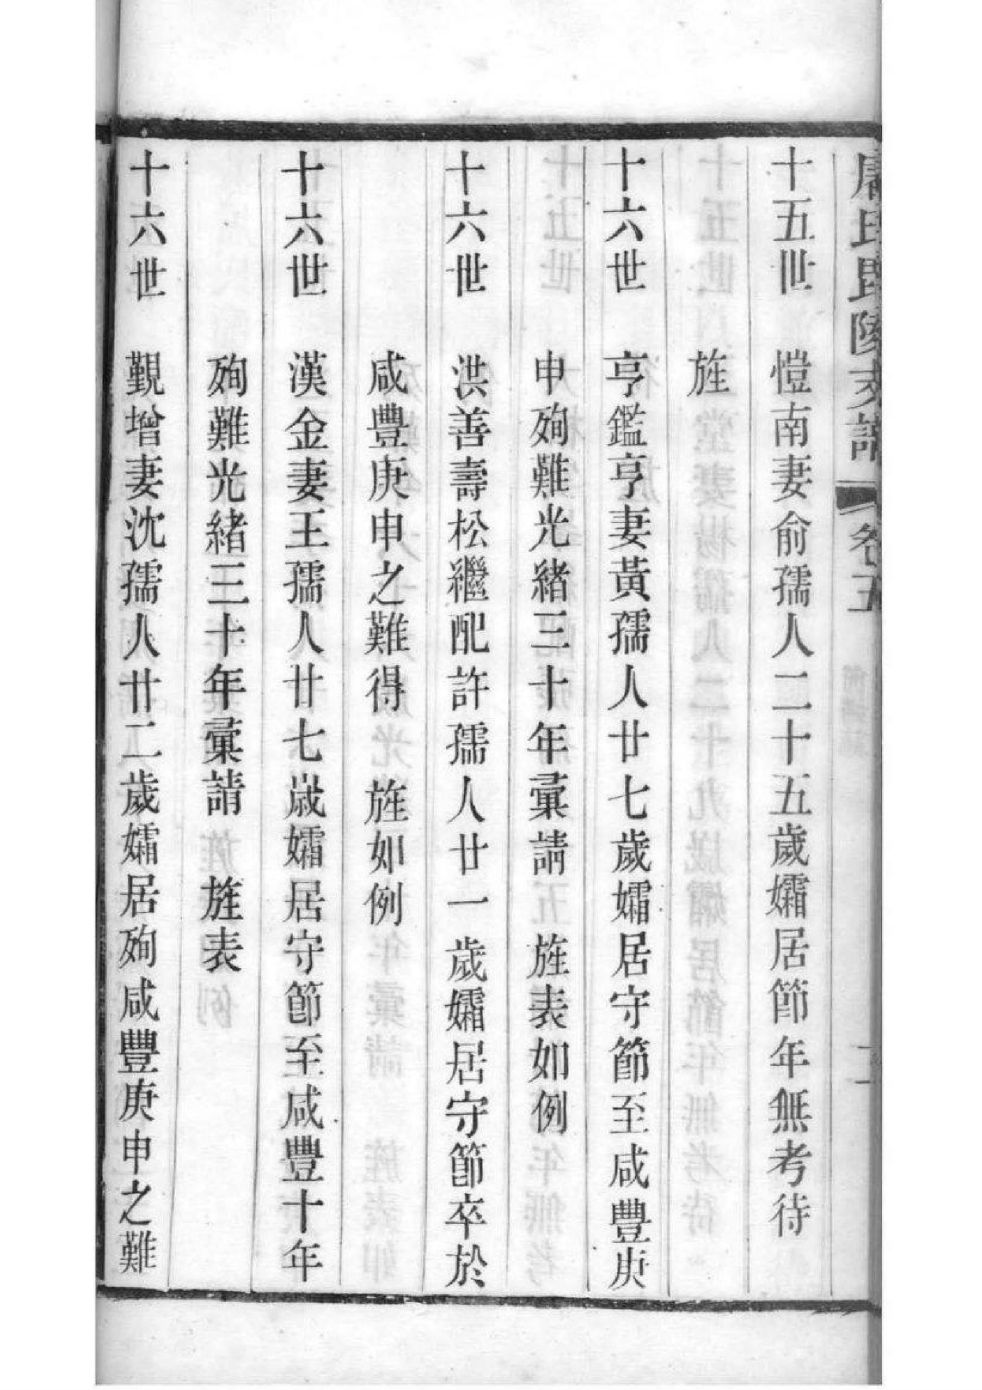 氏毘陵支譜 卷五
十五世 愷南妻俞孺人二十五歲孀居節年無考待
旌
十六世 亨鑑亨妻黃孺人廿七歲孀居守節至咸豐庚
申殉難光緒三十年彙請 旌表如例
十六世 洪善壽松繼配許孺人廿一歲孀居守節卒於
咸豐庚申之難得 旌如例
十六世 漢金妻王孺人廿七歲孀居守節至咸豐十年
殉難光緒三十年彙請 旌表
十六世 覲增妻沈孺人廿二歲孀居殉咸豐庚申之難